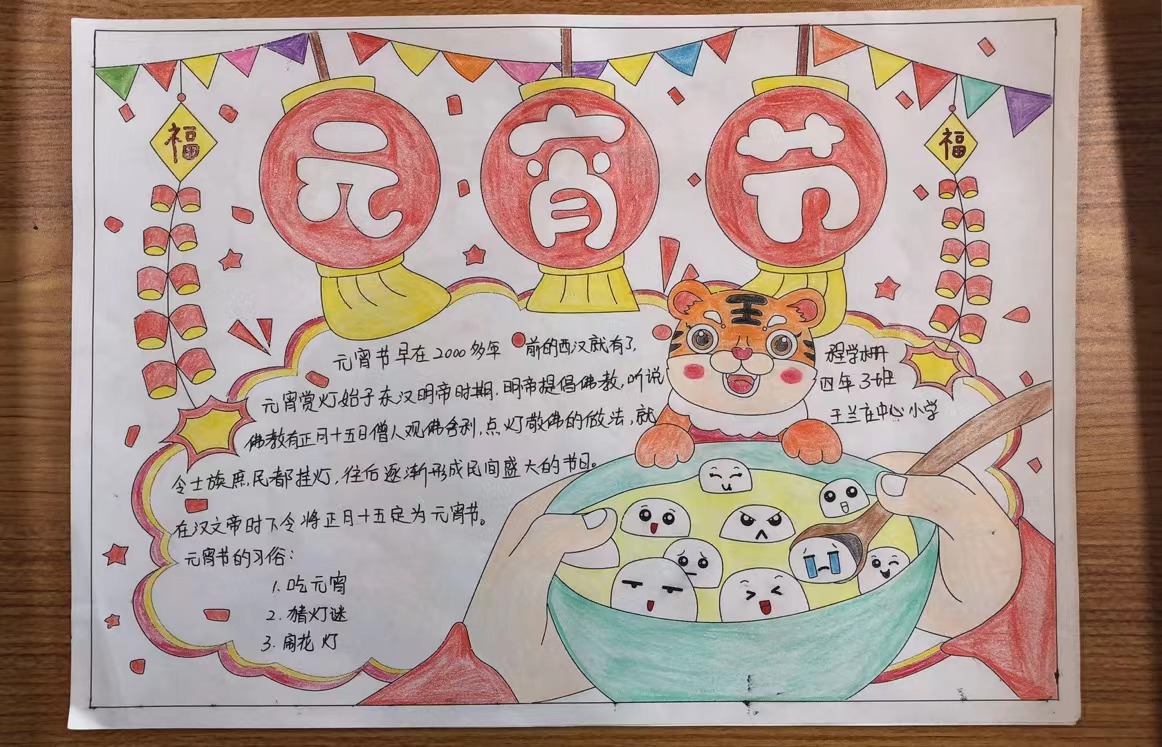 元宵节
福
福
元宵节早在2000多年前的西汉就有了,
元宵赏灯始于东汉明帝时期,明帝提倡佛教,听说
佛教有正月十五日僧人观佛舍利,点灯敬佛的做法,就
令士族庶民都挂灯,往后逐渐形成民间盛大的节日。
在汉文帝时下令将正月十五定为元宵节。
元宵节的习俗:
1.吃元宵
2.猜灯谜
3.闹花灯
程学
四年3班
王兰庄中心小学
王